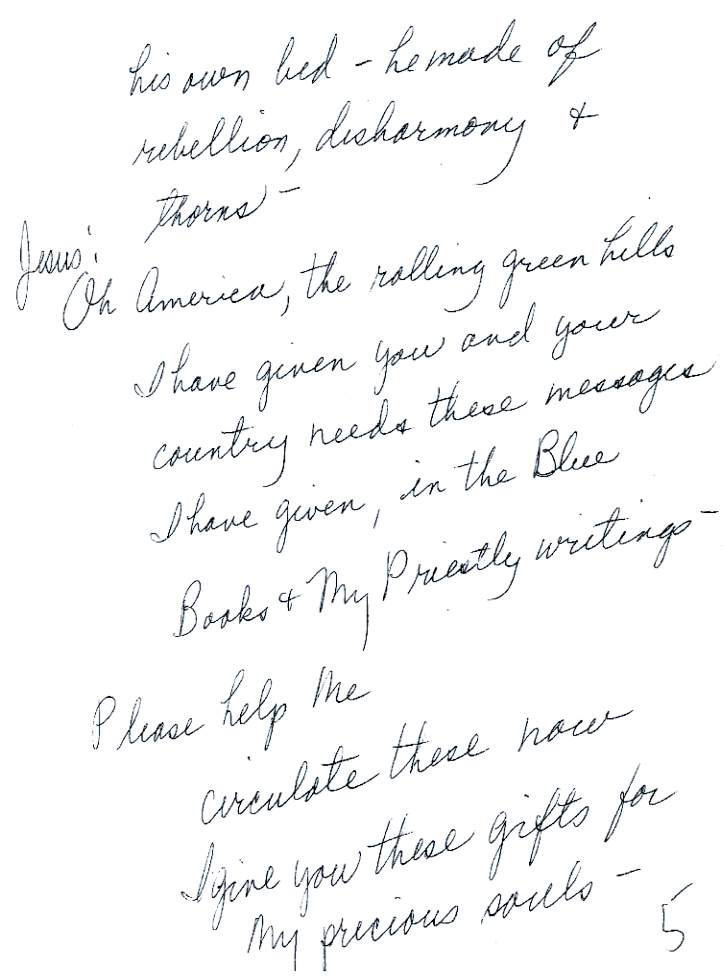 his own bed – he made of
rebellion, disharmony &
thorns –
Jesus:
Oh America, the rolling green hills
I have given you and your
country needs these messages
I have given, in the Blue
Books & My Priestly writings –
Please help Me
circulate these now
I give you these gifts for
My precious souls –
5